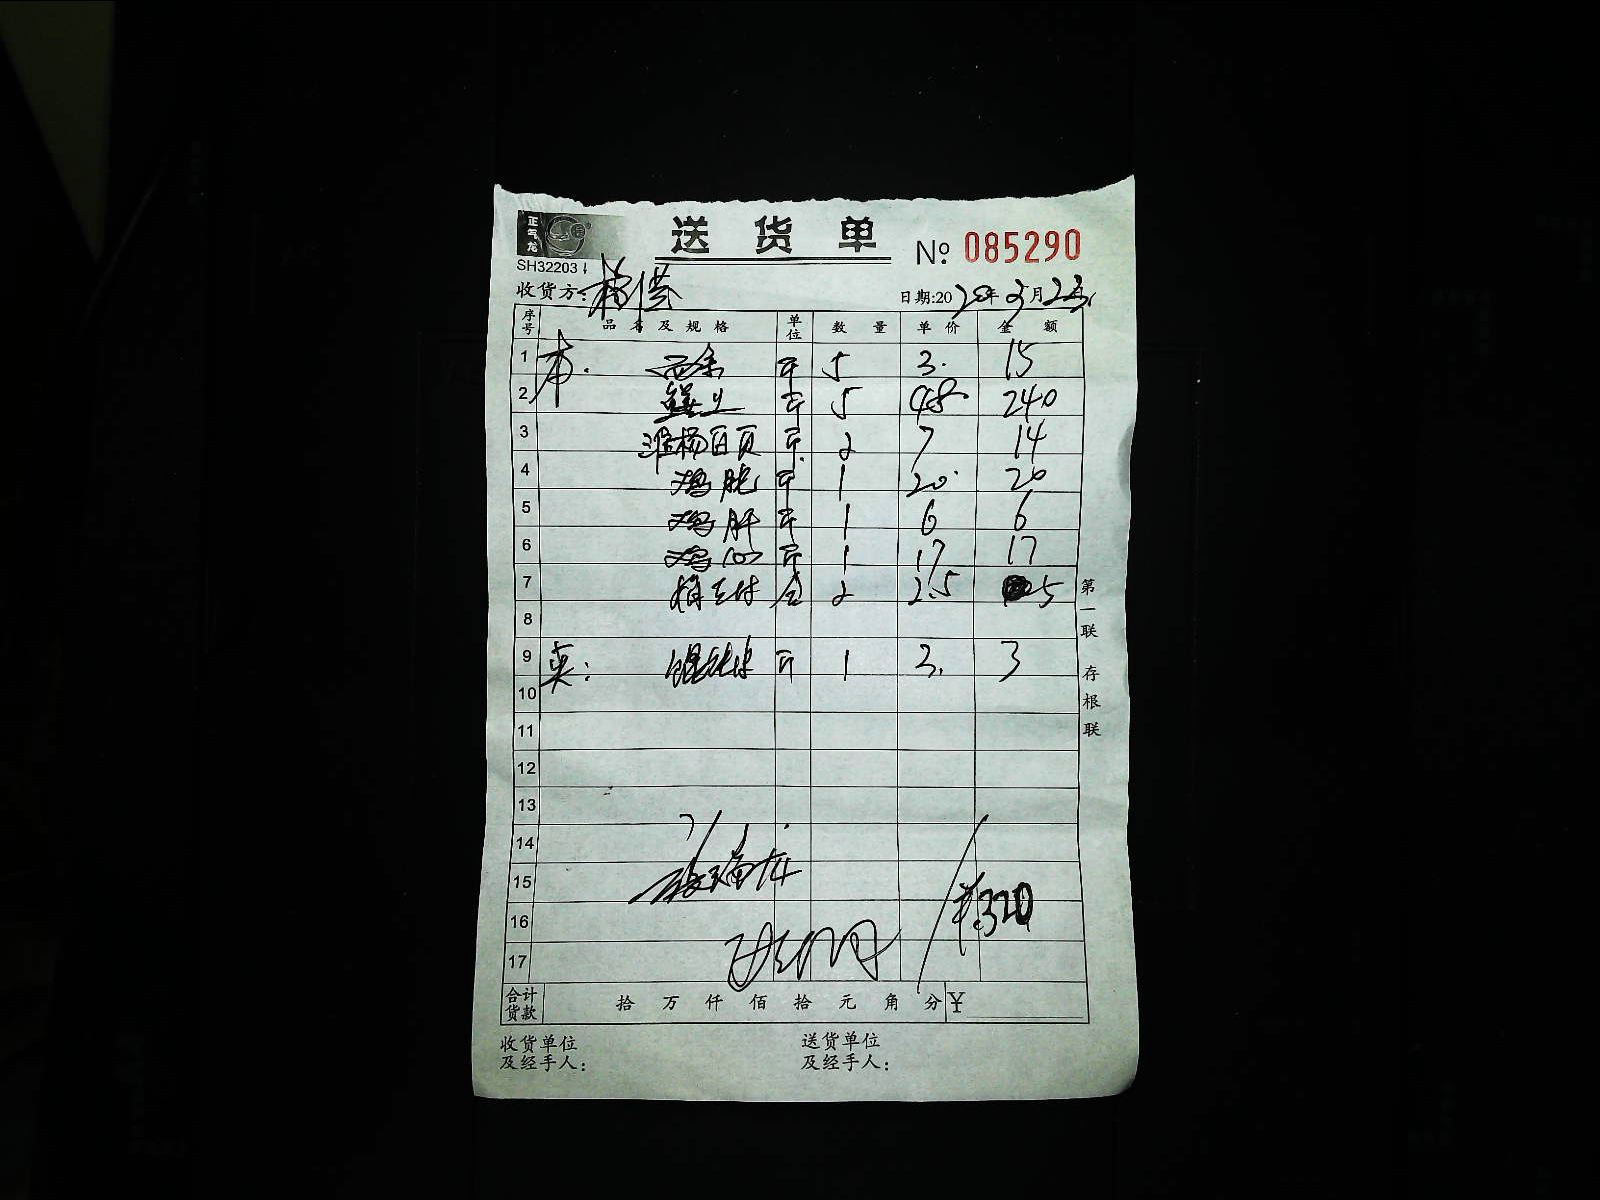 正气龙
送货单 № 085290
SH32203
收货方: 日期:2020年3月23
序号 品名及规格 单位 数量 单价 金额
1 斤 5 3. 15
2 斤 5 48 240
3 淮杨百页 斤 2 7 14
4 鸡胗 斤 1 20 20
5 鸡肝 斤 1 6 6
6 鸡心 斤 1 17 17
7 2 2.5 5
8
9 英: 斤 1 3. 3
10
11
12
13
14
15
16 320
17
合计货款 拾 万 仟 佰 拾 元 角 分 ¥
收货单位 送货单位
及经手人: 及经手人:
第一联 存根联